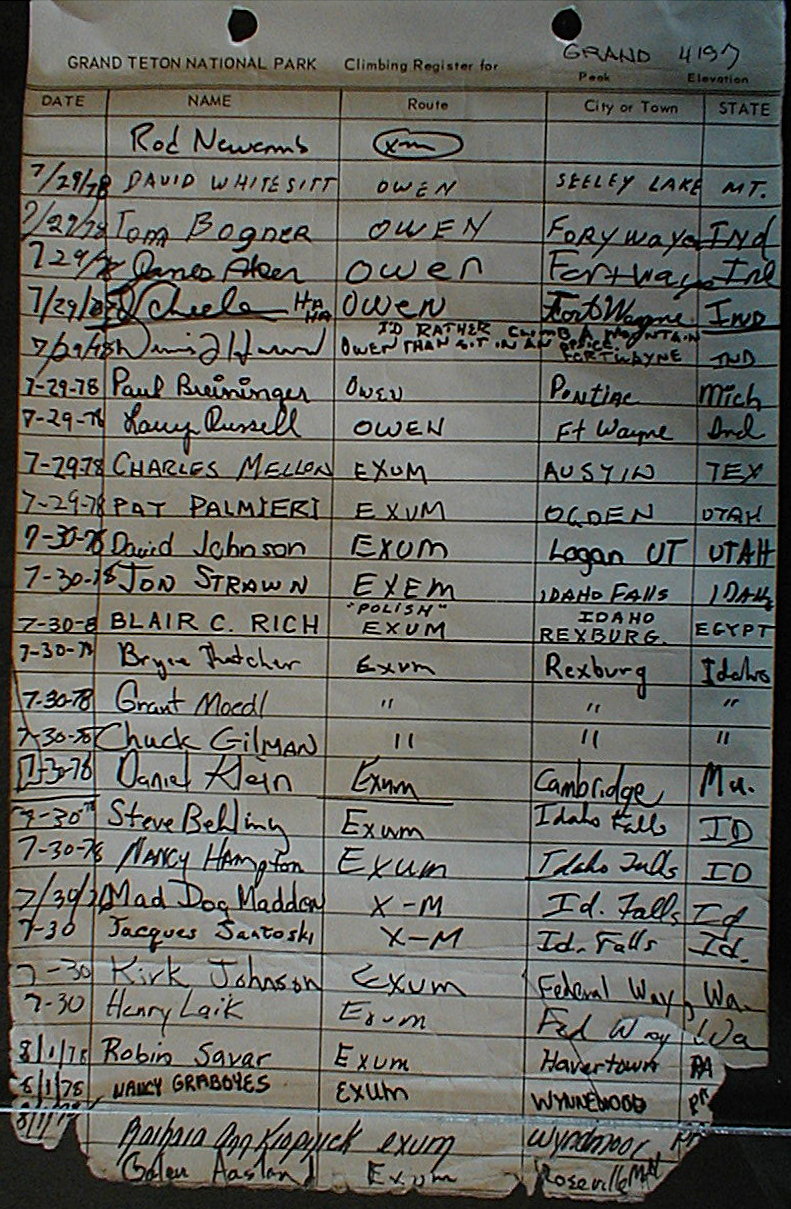 GRAND 4197
GRAND TETON NATIONAL PARK Climbing Register for Peak Elevation
DATE NAME Route City or Town STATE
Rod Newcomb xm
7/29/78 DAVID WHITESITT OWEN SEELEY LAKE MT.
7/29/78 Tom Bogner OWEN FORT Wayne Ind
7 29/78 James Aken Owen Fort Wayne Ind
7/29/78 Scheele HA HA Owen Fort Wayne IND
I'D RATHER CLIMB A MOUNTAIN
7/29/78 OWEN THAN SIT IN AN OFFICE. FORT WAYNE IND
7-29-78 Paul Breininger OWEN Pontiac Mich
7-29-78 Larry Russell OWEN Ft Wayne Ind
7-29-78 CHARLES MELLON EXUM AUSTIN TEX
7-29-78 PAT PALMIERI EXUM OGDEN UTAH
7-30-78 David Johnson EXUM Logan UT UTAH
7-30-78 JON STRAWN EXEM IDAHO FALLS IDAHO
"POLISH" IDAHO
7-30-8 BLAIR C. RICH EXUM REXBURG. EGYPT
7-30-78 Bryce Thatcher Exum Rexburg Idaho
7-30-78 Grant Moedl " " "
7-30-78 Chuck GILMAN " " "
7-30-78 Daniel Klein Exum Cambridge Ma.
7-30-78 Steve Behling Exum Idaho Falls ID
7-30-78 NANCY HAMPTON EXUM Idaho Falls ID
7/30/78 Mad Dog Madden X-M Id. Falls Id
7-30 Jacques Santoski X-M Id. Falls Id.
7-30 Kirk Johnson Exum Federal Way, Wa.
7-30 Henry Laik Exum Fed Way Wa
8/1/78 Robin Savar Exum Havertown PA
8/1/78 NANCY GRABOYES EXUM WYNNEWOOD PA
8/1/78 Barbara Ann exum Wyndmoor PA
Galen Aasland Exum Roseville MN